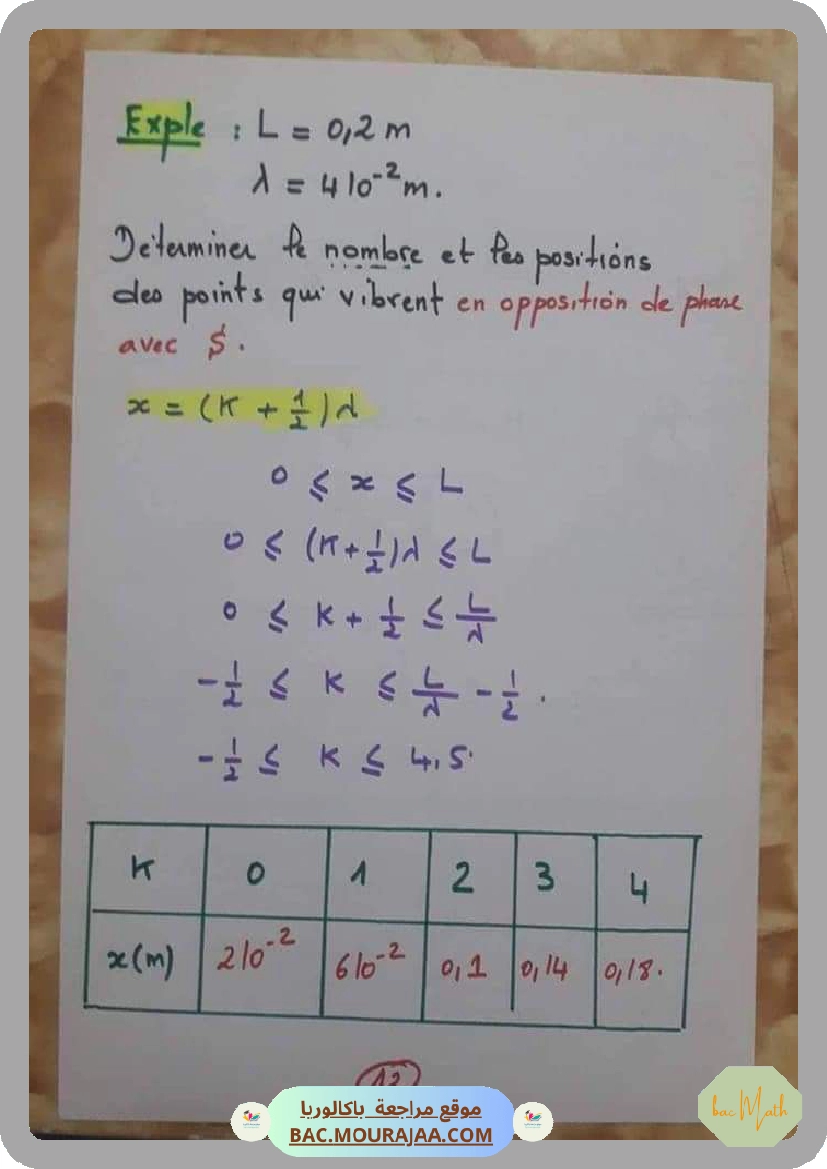 Exple : L = 0,2 m
λ = 4 10⁻² m.
Déterminer le nombre et les positions
des points qui vibrent en opposition de phase
avec S.
x = (K + 1/2) λ
0 ≤ x ≤ L
0 ≤ (K + 1/2) λ ≤ L
0 ≤ K + 1/2 ≤ L/λ
-1/2 ≤ K ≤ L/λ - 1/2 .
-1/2 ≤ K ≤ 4,5
K 0 1 2 3 4
x(m) 2 10⁻² 6 10⁻² 0,1 0,14 0,18.
موقع مراجعة باكالوريا
BAC.MOURAJAA.COM
bac Math